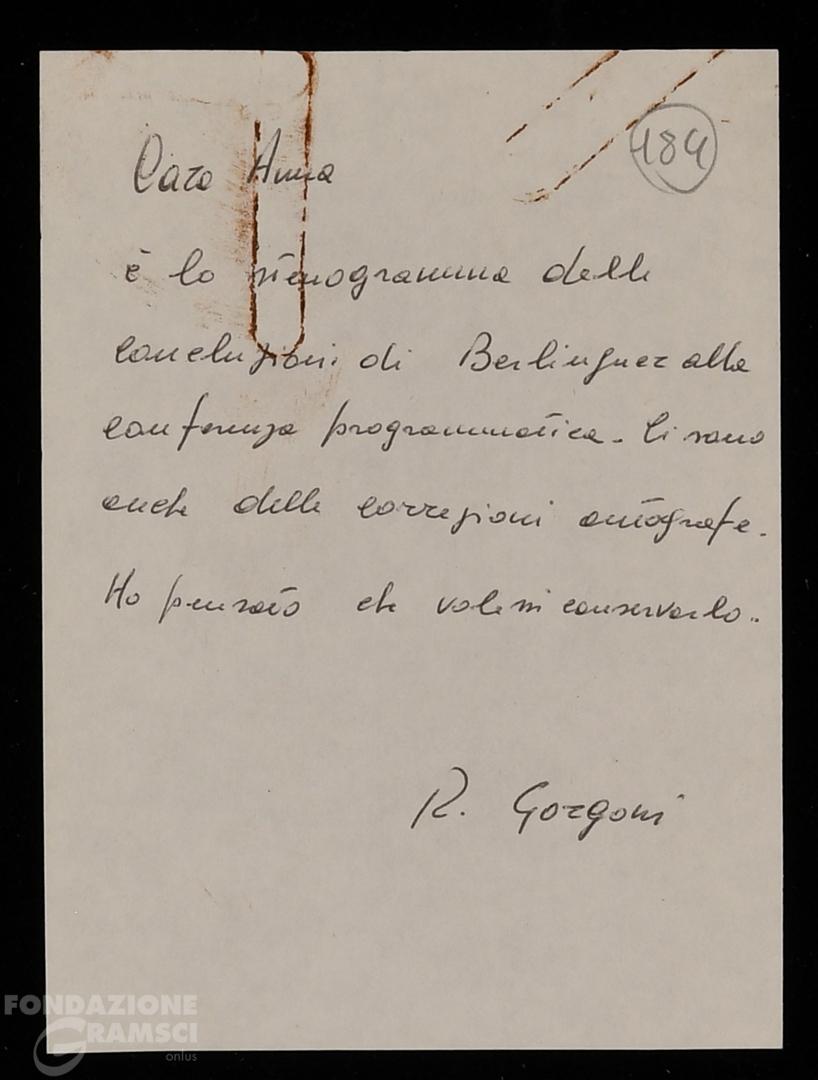 184
Cara Anna
è lo stenogramma delle
conclusioni di Berlinguer alla
conferenza programmatica. Ci sono
anche delle correzioni autografe.
Ho pensato che volessi conservarlo..
R. Gorgoni
FONDAZIONE
GRAMSCI
onlus